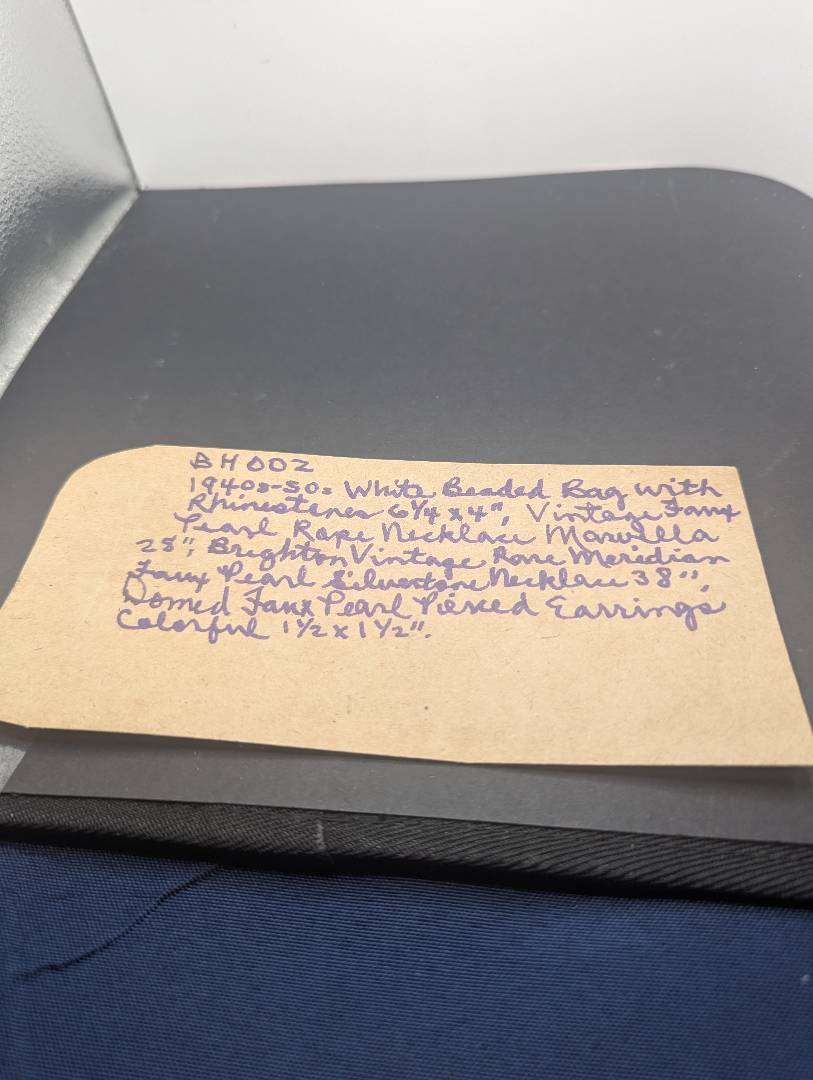 BH002
1940s-50s White Beaded Bag with
Rhinestones 6 1/4 x 4", Vintage Faux
Pearl Rope Necklace Marvella
28", Brighton Vintage Rare Meridian
Faux Pearl Silvertone Necklace 38",
Domed Faux Pearl Pierced Earrings
Colorful 1 1/2 x 1 1/2".